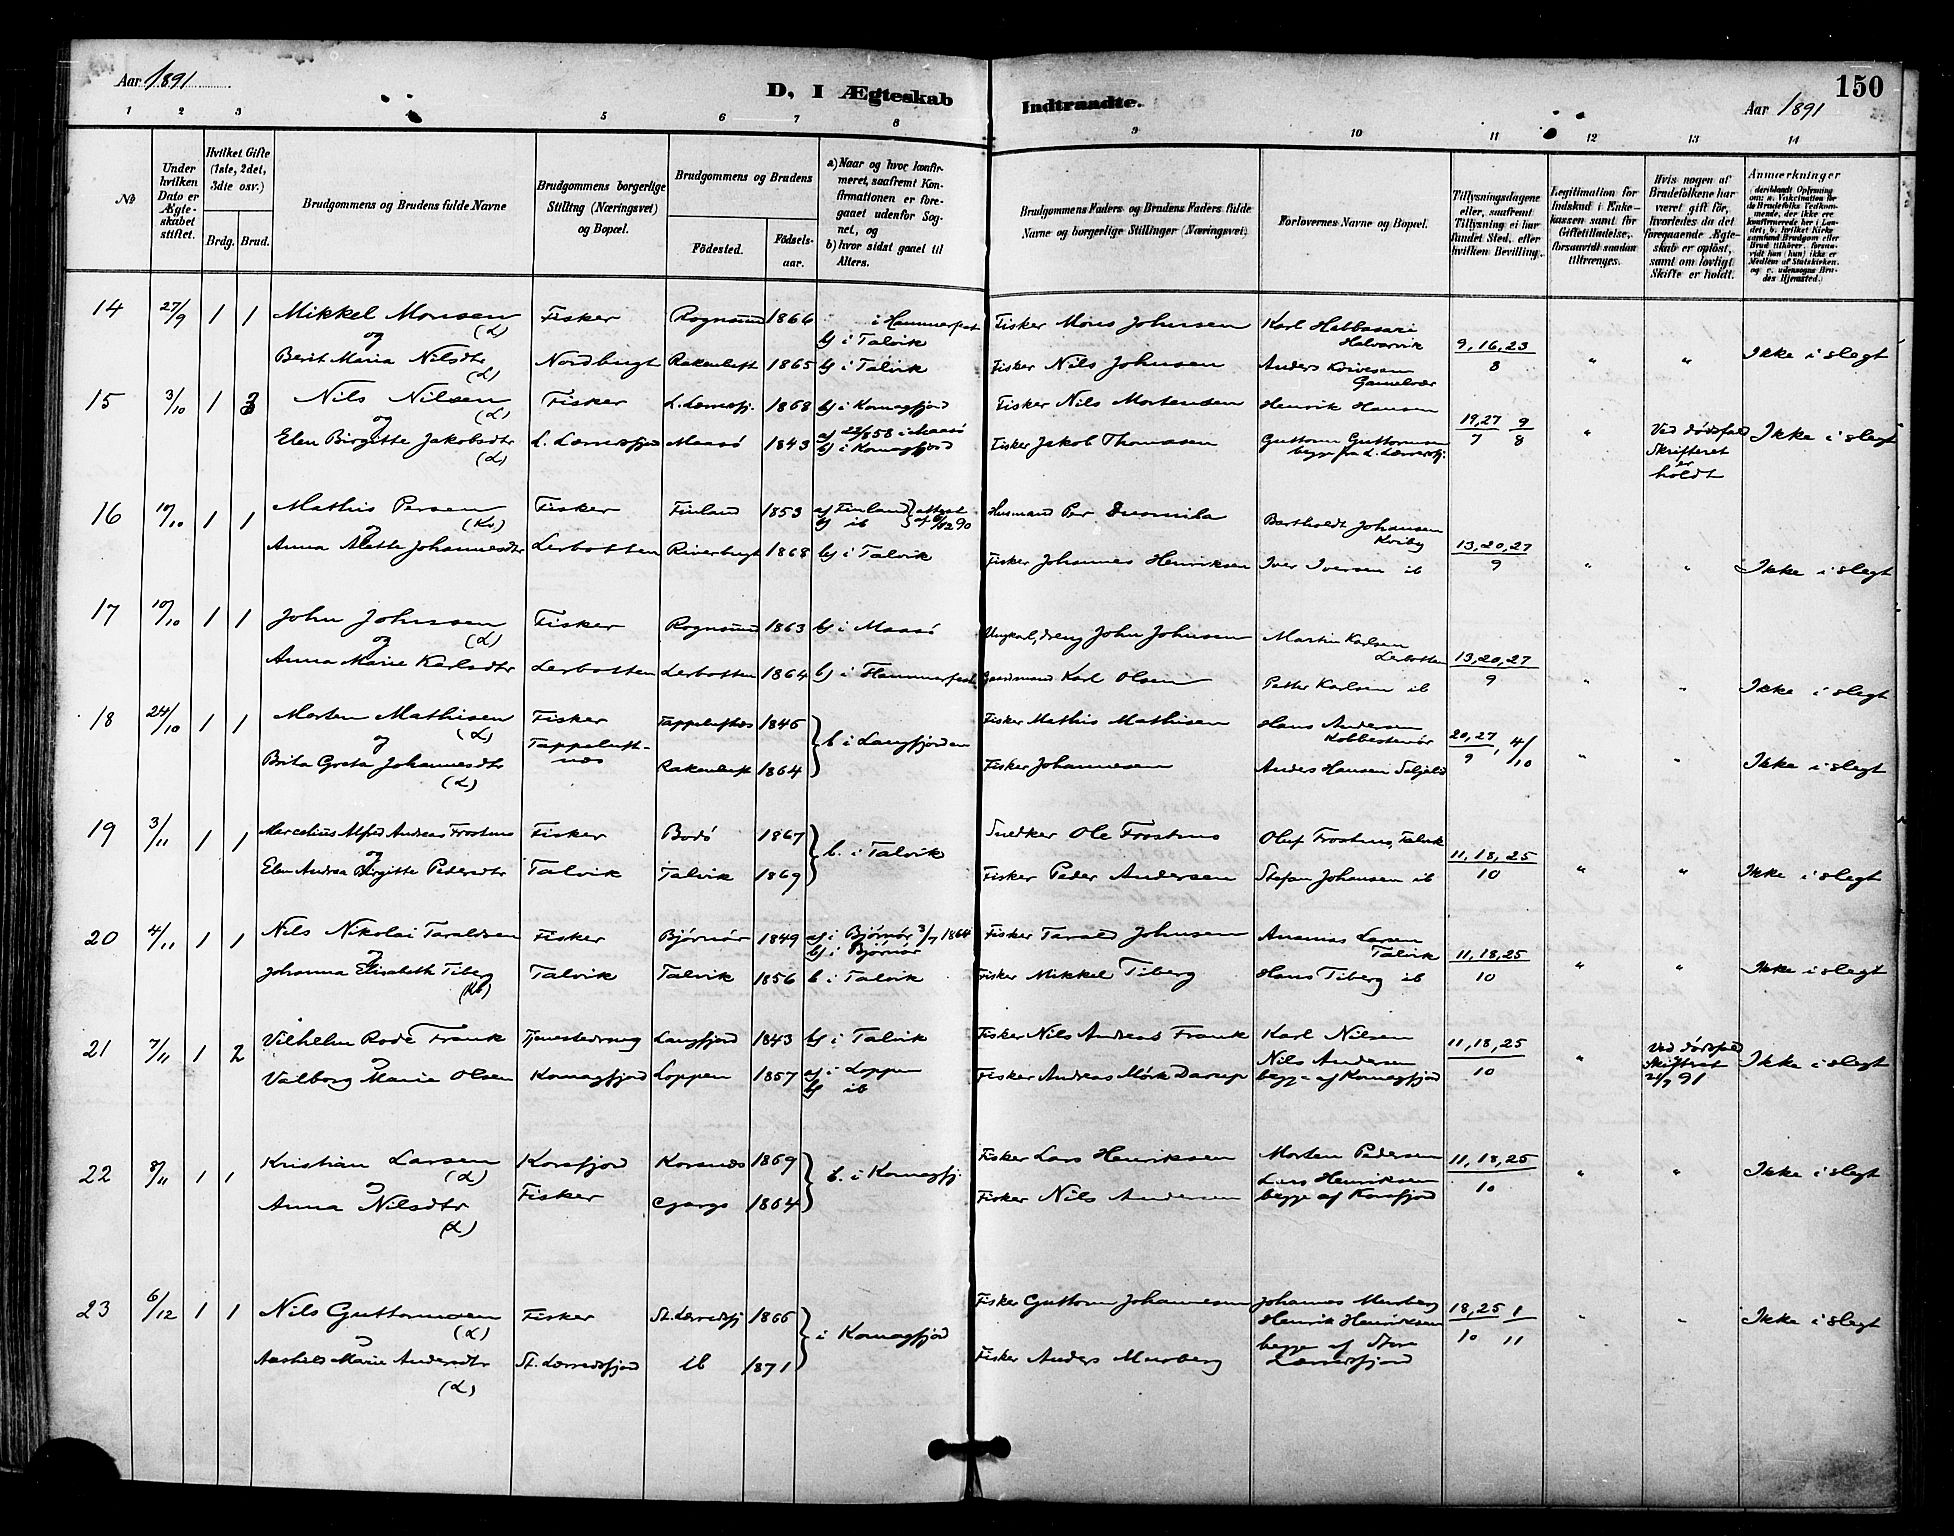 Aar 1891
D. I Ægteskab Indtraadte.
150
Aar 1891
1 2 3 5 6 7 8 9 10 11 12 13 14
No
Under hvilken Dato er Ægteskabet stiftet.
Hvilket Gifte (1ste, 2det, 3die osv.)
Brdg. Brud.
Brudgommens og Brudens fulde Navne
Brudgommens borgerlige Stilling (Næringsvei) og Bopæl.
Brudgommens og Brudens
Fødested. Fødselsaar.
a) Naar og hvor konfirmeret, saafremt Konfirmationen er foregaaet udenfor Sognet, og
b) hvor sidst gaaet til Alters.
Brudgommens Faders og Brudens Faders fulde Navne og borgerlige Stillinger (Næringsvei).
Forlovernes Navne og Bopæl.
Tillysningsdagene eller, saafremt Tillysning ei har fundet Sted, efter hvilken Bevilling.
Legitimation for Indskud i Enkekassen samt for Giftetilladelse, forsaavidt saadan tiltrænges.
Hvis nogen af Brudefolkene har været gift før, hvorledes da det foregaaende Ægteskab er opløst, samt om lovligt Skifte er holdt.
Anmærkninger
14 27/9 1 1 Mikkel Monsen (L) Fisker Rognsund 1866 i Hammerfest b) i Talvik Fisker Mons Johnsen Karl Halvarvik 9, 16, 23
og
Berit Maria Nilsdtr (L) Nordbugt Rakenluft 1865 b) i Talvik Fisker Nils Johnsen Anders 8 " " Ikke i slegt
15 3/10 1 3 Nils Nilsen (L) Fisker L. Lerresfj. 1868 b) i Komagfjord Fisker Nils Mortensen Henrik Hansen 19, 27 9
og
Elen Birgitte Jakobsdtr (L) L. Lerresfjord Maasö 1843 a) 22/8 58 i Maasö b) i Komagfjord Fisker Jakob Thomasen Guttorm Guttormsen begge fra L. Lerresfj. 7 8 " Ved dødsfald Skifteret er holdt Ikke i slegt
16 10/10 1 1 Mathis Persen (Kv) Fisker Finland 1853 a) Finland b) ib attest Husmand Per Bertholdt Johansen Kviby 13, 20, 27
og
Anna Mette Johannesdtr Lerbotten Riverbugt 1868 b) i Talvik Fisker Johannes Henriksen Iver Iversen ib 9 " " Ikke i slegt
17 10/10 1 1 John Johnsen (L) Fisker Rognsund 1863 b) i Maasö Ungkarl, dreng John Johnsen Martin Karlsen Lerbotten 13, 20, 27
og
Anna Marie Karlsdtr Lerbotten Lerbotten 1864 b) i Hammerfest Gaardmand Karl Olsen Petter Karlsen ib 9 " " Ikke i slegt
18 24/10 1 1 Morten Mathisen (L) Fisker Tappeluftnæs Tappeluftnæs 1845 b. i Langfjorden Fisker Mathis Mathisen Hans Andersen 20, 27 4/10
og
Brita Greta Johannesdtr (L) Rakenluft 1864 Fisker Johannesen Anders Hansen 9 " " Ikke i slegt
19 3/11 1 1 Marcelius Alfred Andreas Frostmo Fisker Bodö 1867 b. i Talvik Snedker Ole Frostmo Oluf Frostmo, Talvik 11, 18, 25
og
Elen Andrea Birgitte Pedersdtr Talvik Talvik 1869 Fisker Peder Andersen Stefan Johansen ib 10 " " Ikke i slegt
20 4/11 1 1 Nils Nikolai Taraldsen Fisker Björnör 1849 a) i Björnör 3/7 1864 b) i Björnör Fisker Tarald Johnsen Ananias Larsen Talvik 11, 18, 25
og
Johanna Elisabeth Tiberg (Kv) Talvik Talvik 1856 b i Talvik Fisker Mikkel Tiberg Hans Tiberg ib 10 " " Ikke i slegt
21 7/11 1 2 Vilhelm Rode Frank Tjenestedreng Langfjord 1843 b) i Talvik Fisker Nils Andreas Frank Karl Nilsen 11, 18, 25
og
Valborg Marie Olsen Komagfjord Loppen 1857 a) i Loppen b) ib Fisker Andreas Mörk Darup Nils Andersen begge af Komagfjord 10 " Ved dødsfald Skifteret 21/9 91 Ikke i slegt
22 8/11 1 1 Kristian Larsen (L) Korsfjord Fisker Korsnæs 1869 b. i Komagfj. Fisker Lars Henriksen Morten Pedersen 11, 18, 25
og
Anna Nilsdtr (L) Gargo 1864 Fisker Nils Andersen Lars Henriksen begge af Korsfjord 10 " " Ikke i slegt
23 6/12 1 1 Nils Guttormsen (L) Fisker St. Lerredsfj 1866 i Komagfjord Fisker Guttorm Johannesen Johannes Murberg Henrik Henriksen 18, 25 1
og
Marie Andersdtr (L) St. Lerredsfjord ib 1871 Fisker Anders Murberg begge af Store Lerredsfjord 10 11 " " Ikke i slegt